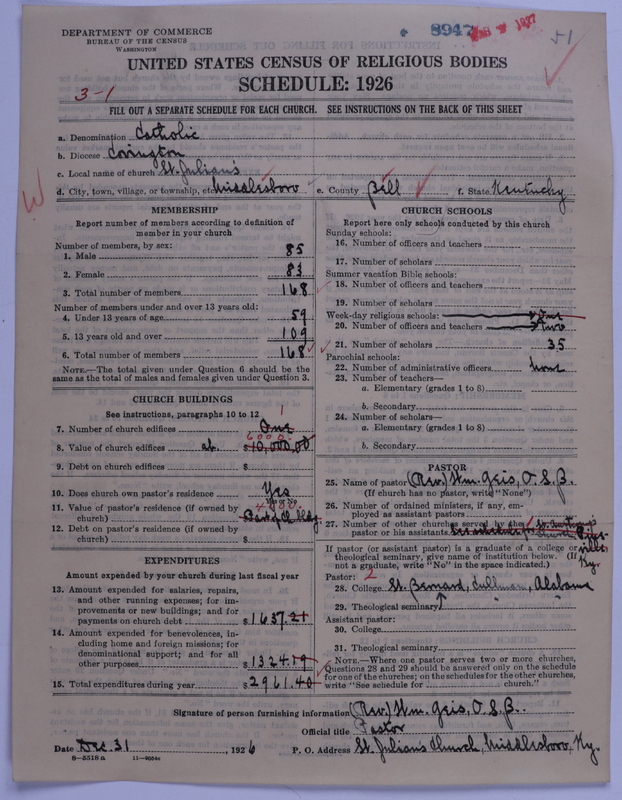 DEPARTMENT OF COMMERCE
BUREAU OF THE CENSUS
WASHINGTON
8947
51
UNITED STATES CENSUS OF RELIGIOUS BODIES
SCHEDULE: 1926
3-1
FILL OUT A SEPARATE SCHEDULE FOR EACH CHURCH. SEE INSTRUCTIONS ON THE BACK OF THIS SHEET
a. Denomination Catholic
b. Diocese Covington
c. Local name of church St. Julian's
d. City, town, village, or township, etc. Middlesboro e. County Bell f. State Kentucky
W
MEMBERSHIP
Report number of members according to definition of member in your church
Number of members, by sex:
1. Male 85
2. Female 83
3. Total number of members 168
Number of members under and over 13 years old:
4. Under 13 years of age 59
5. 13 years old and over 109
6. Total number of members 168
NOTE.—The total given under Question 6 should be
same as the total of males and females given under Question 3.
CHURCH BUILDINGS
See instructions, paragraphs 10 to 12
1
7. Number of church edifices One
6000
8. Value of church edifices ab. $10,000.00
9. Debt on church edifices $
10. Does church own pastor's residence Yes
Yes or No
4000.
11. Value of pastor's residence (if owned by
church) Part of Ch. bldg
12. Debt on pastor's residence (if owned by
church) $
EXPENDITURES
Amount expended by your church during last fiscal year
13. Amount expended for salaries, repairs,
and other running expenses; for im-
provements or new buildings; and for
payments on church debt $1637.21
14. Amount expended for benevolences, in-
cluding home and foreign missions; for
denominational support; and for all
other purposes $1324.19
15. Total expenditures during year $2961.40
CHURCH SCHOOLS
Report here only schools conducted by this church
Sunday schools:
16. Number of officers and teachers
17. Number of scholars
Summer vacation Bible schools:
18. Number of officers and teachers
19. Number of scholars
Week-day religious schools: One
20. Number of officers and teachers Two
21. Number of scholars 35
Parochial schools:
22. Number of administrative officers none
23. Number of teachers—
a. Elementary (grades 1 to 8)
b. Secondary
24. Number of scholars—
a. Elementary (grades 1 to 8)
b. Secondary
PASTOR
25. Name of pastor (Rev.) Wm. Geis, O.S.B.
(If church has no pastor, write "None")
26. Number of ordained ministers, if any, em-
ployed as assistant pastors
27. Number of other churches served by the
pastor or his assistants
If pastor (or assistant pastor) is a graduate of a college or
theological seminary, give name of institution below. (If
not a graduate, write "No" in the space indicated.) Ky.
Pastor: 2
28. College St. Bernard, Cullman, Alabama
29. Theological seminary " " "
Assistant pastor:
30. College
31. Theological seminary
NOTE.—Where one pastor serves two or more churches,
Questions 28 and 29 should be answered only on the schedule
for one of the churches; on the schedules for the other churches,
write "See schedule for church."
Signature of person furnishing information (Rev.) Wm. Geis, O.S.B.
Official title Pastor
Date Dec. 31, 1926 P. O. Address St. Julian's Church, Middlesboro, Ky.
8-5518 a